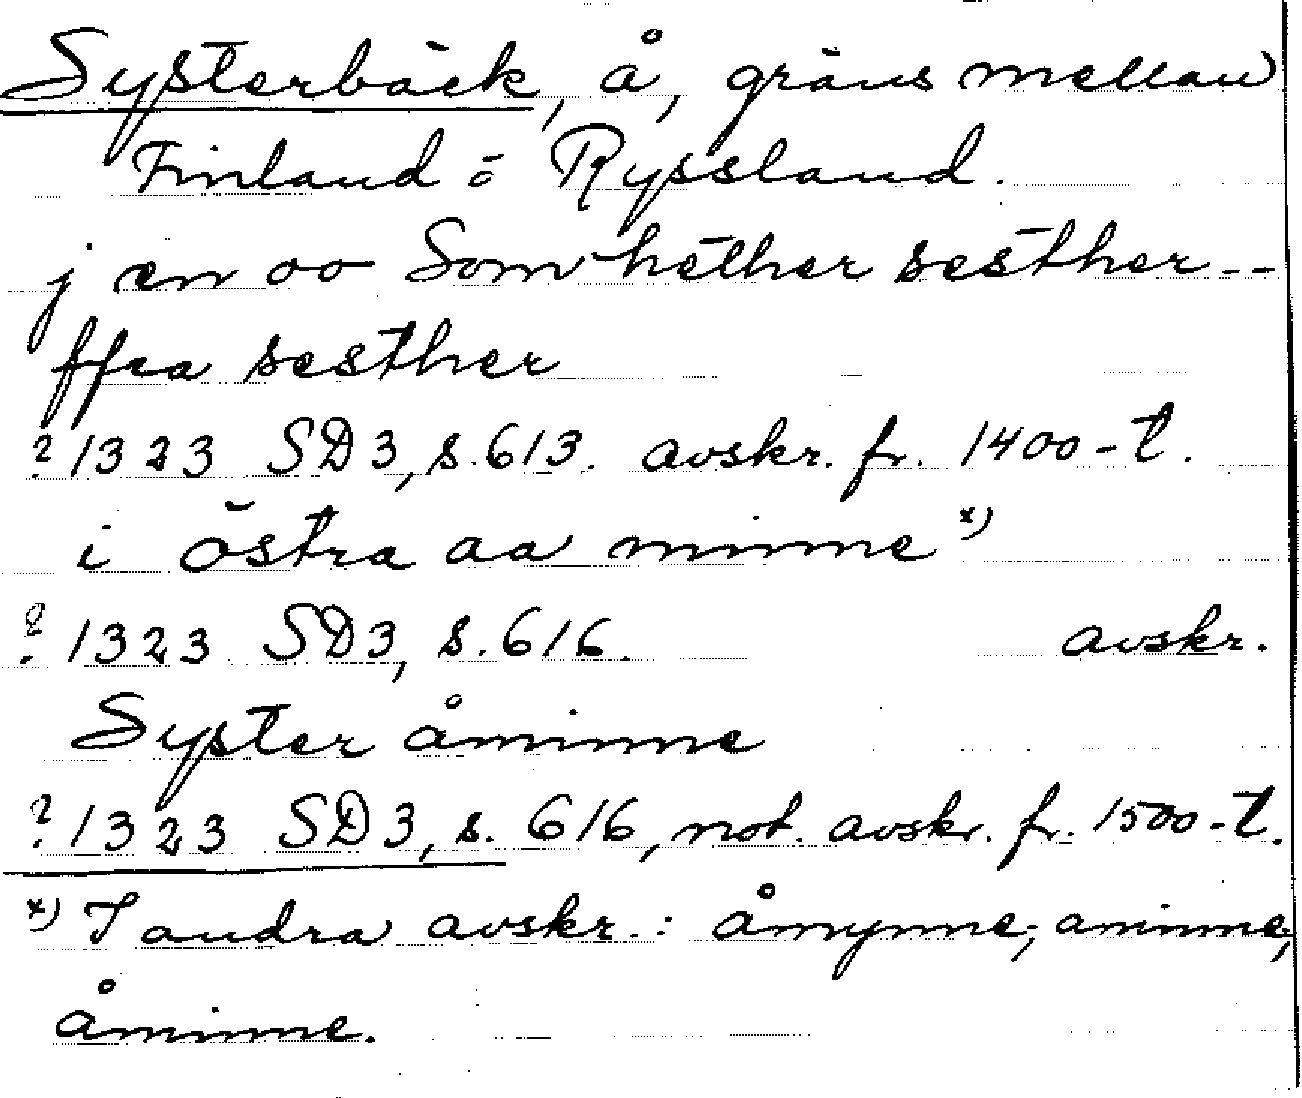 Systerbäck, å, gräns mellan
Finland o Ryssland.
j en oo Som hether sesther--
ffra sesther
? 1323 SD3, s.613. avskr. fr. 1400-t.
i östra aa minne x)
? 1323 SD3, s.616. avskr.
Syster åminne
? 1323 SD3, s. 616, not. avskr. fr. 1500-t.
x) I andra avskr.: åmynne, aminne,
åminne.